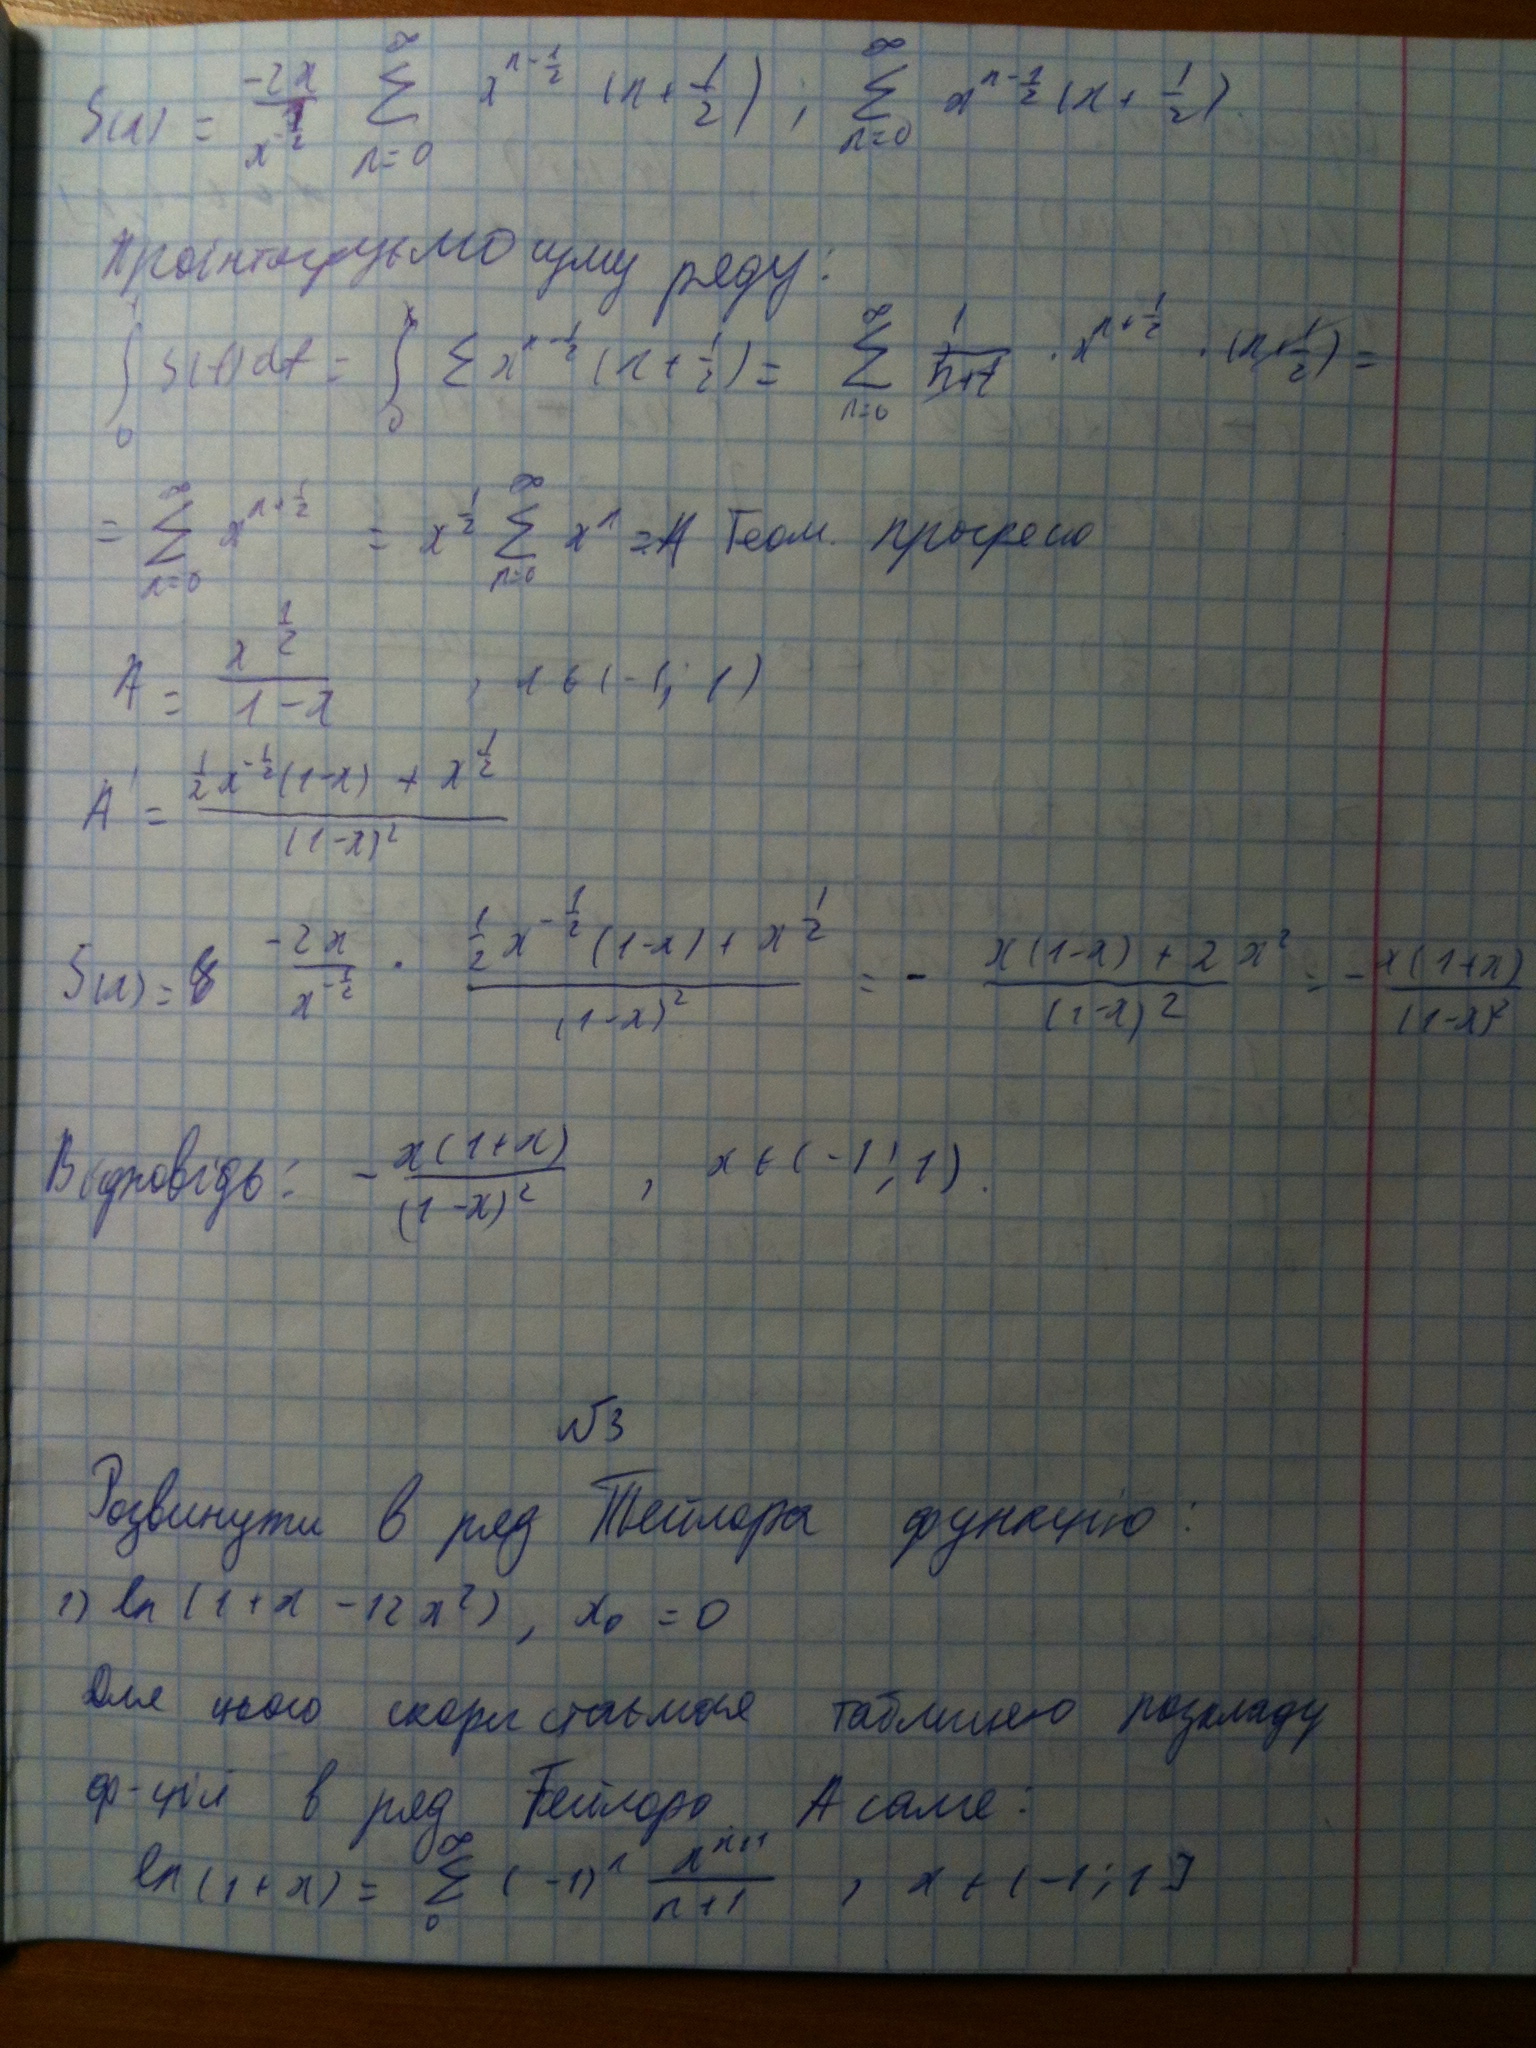 S(x) = \frac{-2x}{x^{-\frac{1}{2}}} \sum_{n=0}^{∞} x^{n-\frac{1}{2}} (n+\frac{1}{2}) ; \sum_{n=0}^{∞} x^{n-\frac{1}{2}} (x+\frac{1}{2})
Проінтегруємо суму ряду:
\int_0 S(t)dt = \int_0^x Σ x^{n-\frac{1}{2}} (n+\frac{1}{2}) = \sum_{n=0}^{∞} \frac{1}{n+1} · x^{n+\frac{1}{2}} · (n+\frac{1}{2}) =
= \sum_{n=0}^{∞} x^{n+\frac{1}{2}} = x^{\frac{1}{2}} \sum_{n=0}^{∞} x^n = A Геом.
A = \frac{x^{\frac{1}{2}}}{1-x} , x ∈ (-1; 1)
A' = \frac{\frac{1}{2}x^{-\frac{1}{2}}(1-x) + x^{\frac{1}{2}}}{(1-x)^2}
S(x) = \frac{-2x}{x^{-\frac{1}{2}}} · \frac{\frac{1}{2}x^{-\frac{1}{2}}(1-x) + x^{\frac{1}{2}}}{(1-x)^2} = - \frac{x(1-x) + 2x^2}{(1-x)^2} = - \frac{x(1+x)}{(1-x)^2}
Відповідь: - \frac{x(1+x)}{(1-x)^2} , x ∈ (-1; 1).
№3
Розвинути в ряд Тейлора функцію:
1) ln (1+x-12x^2), x_0 = 0
Для цього скористаємося таблицею розкладу
ф-цій в ряд Тейлора А саме:
ln (1+x) = \sum_0^{∞} (-1)^n \frac{x^{n+1}}{n+1} , x ∈ (-1; 1]